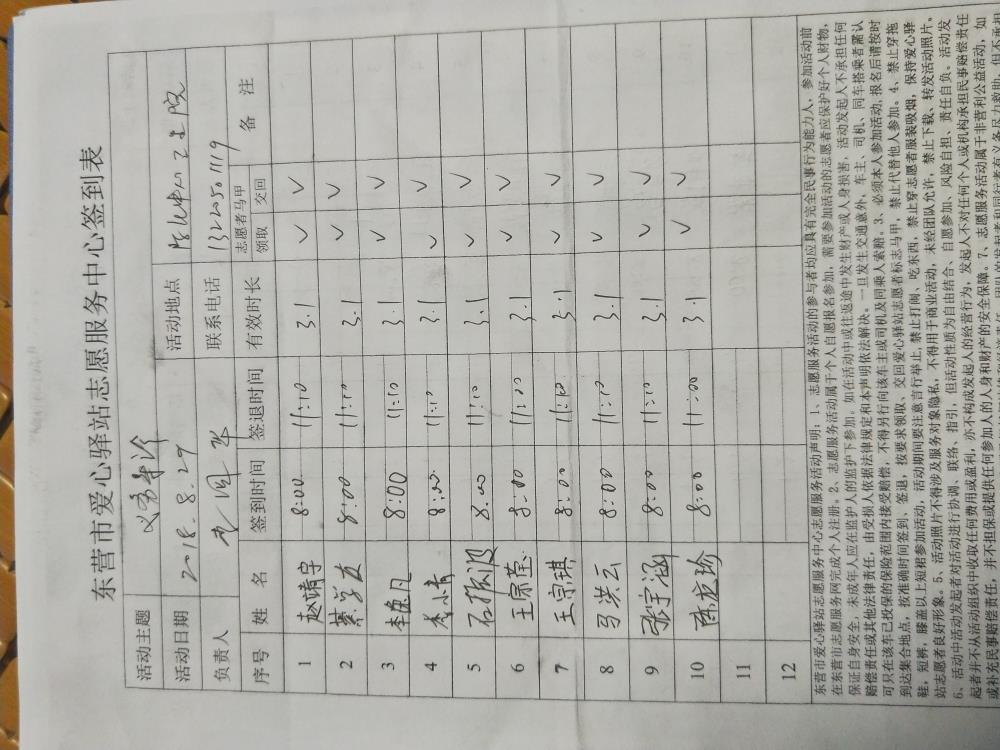 东营市爱心驿站志愿服务中心签到表
活动主题 义务导诊 活动地点
活动日期 2018.8.29 联系电话 13225501119
负责人
序号 姓名 签到时间 签退时间 有效时长 志愿者马甲 领取 交回 备注
1 赵靖宇 8:00 11:10 3.1 ✓ ✓
2 8:00 11:10 3.1 ✓ ✓
3 李逸凡 8:00 11:10 3.1 ✓ ✓
4 李小青 8:00 11:10 3.1 ✓ ✓
5 石振波 8:00 11:10 3.1 ✓ ✓
6 王宗莹 8:00 11:00 3.1 ✓ ✓
7 王宗琪 8:00 11:10 3.1 ✓ ✓
8 马洪云 8:00 11:10 3.1 ✓ ✓
9 张宇涵 8:00 11:10 3.1 ✓ ✓
10 陈龙珍 8:00 11:00 3.1 ✓ ✓
11
12
东营市爱心驿站志愿服务中心志愿服务活动声明：1、志愿服务活动的参与者均应具有完全民事行为能力人，参加活动前
在东营市志愿服务网完成个人注册。2、志愿服务活动属于个人自愿报名参加，需要参加活动的志愿者应保护好个人财物，
保证自身安全，未成年人应在监护人的监护下参加。如在活动中或往返途中发生财产或人身损害，活动发起人不承担任何
赔偿责任或其他法律责任，由受损人依据法律规定和本声明依法解决。一旦发生交通意外，车主、司机、同车搭乘者需认
可只在该车已投保的保险范围内接受赔偿，不得另行向该车主或司机及同乘人索赔。3、必须本人参加活动，报名后请按时
到达集合地点，按准确时间签到、签退，按要求领取、交回爱心驿站志愿者标志马甲，禁止代替他人参加。4、禁止穿拖
鞋，短裤，膝盖以上短裙参加活动，活动期间要注意言行举止，禁止打闹、吃东西，禁止穿志愿者服装吸烟，保持爱心驿
站志愿者良好形象。5、活动照片不得涉及服务对象隐私，不得用于商业活动，未经团队允许，禁止下载、转发活动照片。
6、活动中活动发起者对活动进行协调、联络、指引，但活动性质为自由结合、自愿参加、风险自担、责任自负。活动发
起者并不从活动组织中收取任何费用或盈利，亦不构成发起人的经营行为，发起人不对任何个人或机构承担民事赔偿责任
或补充民事赔偿责任，并不担保或提供任何参加人的人身和财产的安全保障。7、志愿服务活动属于非营利公益活动，如